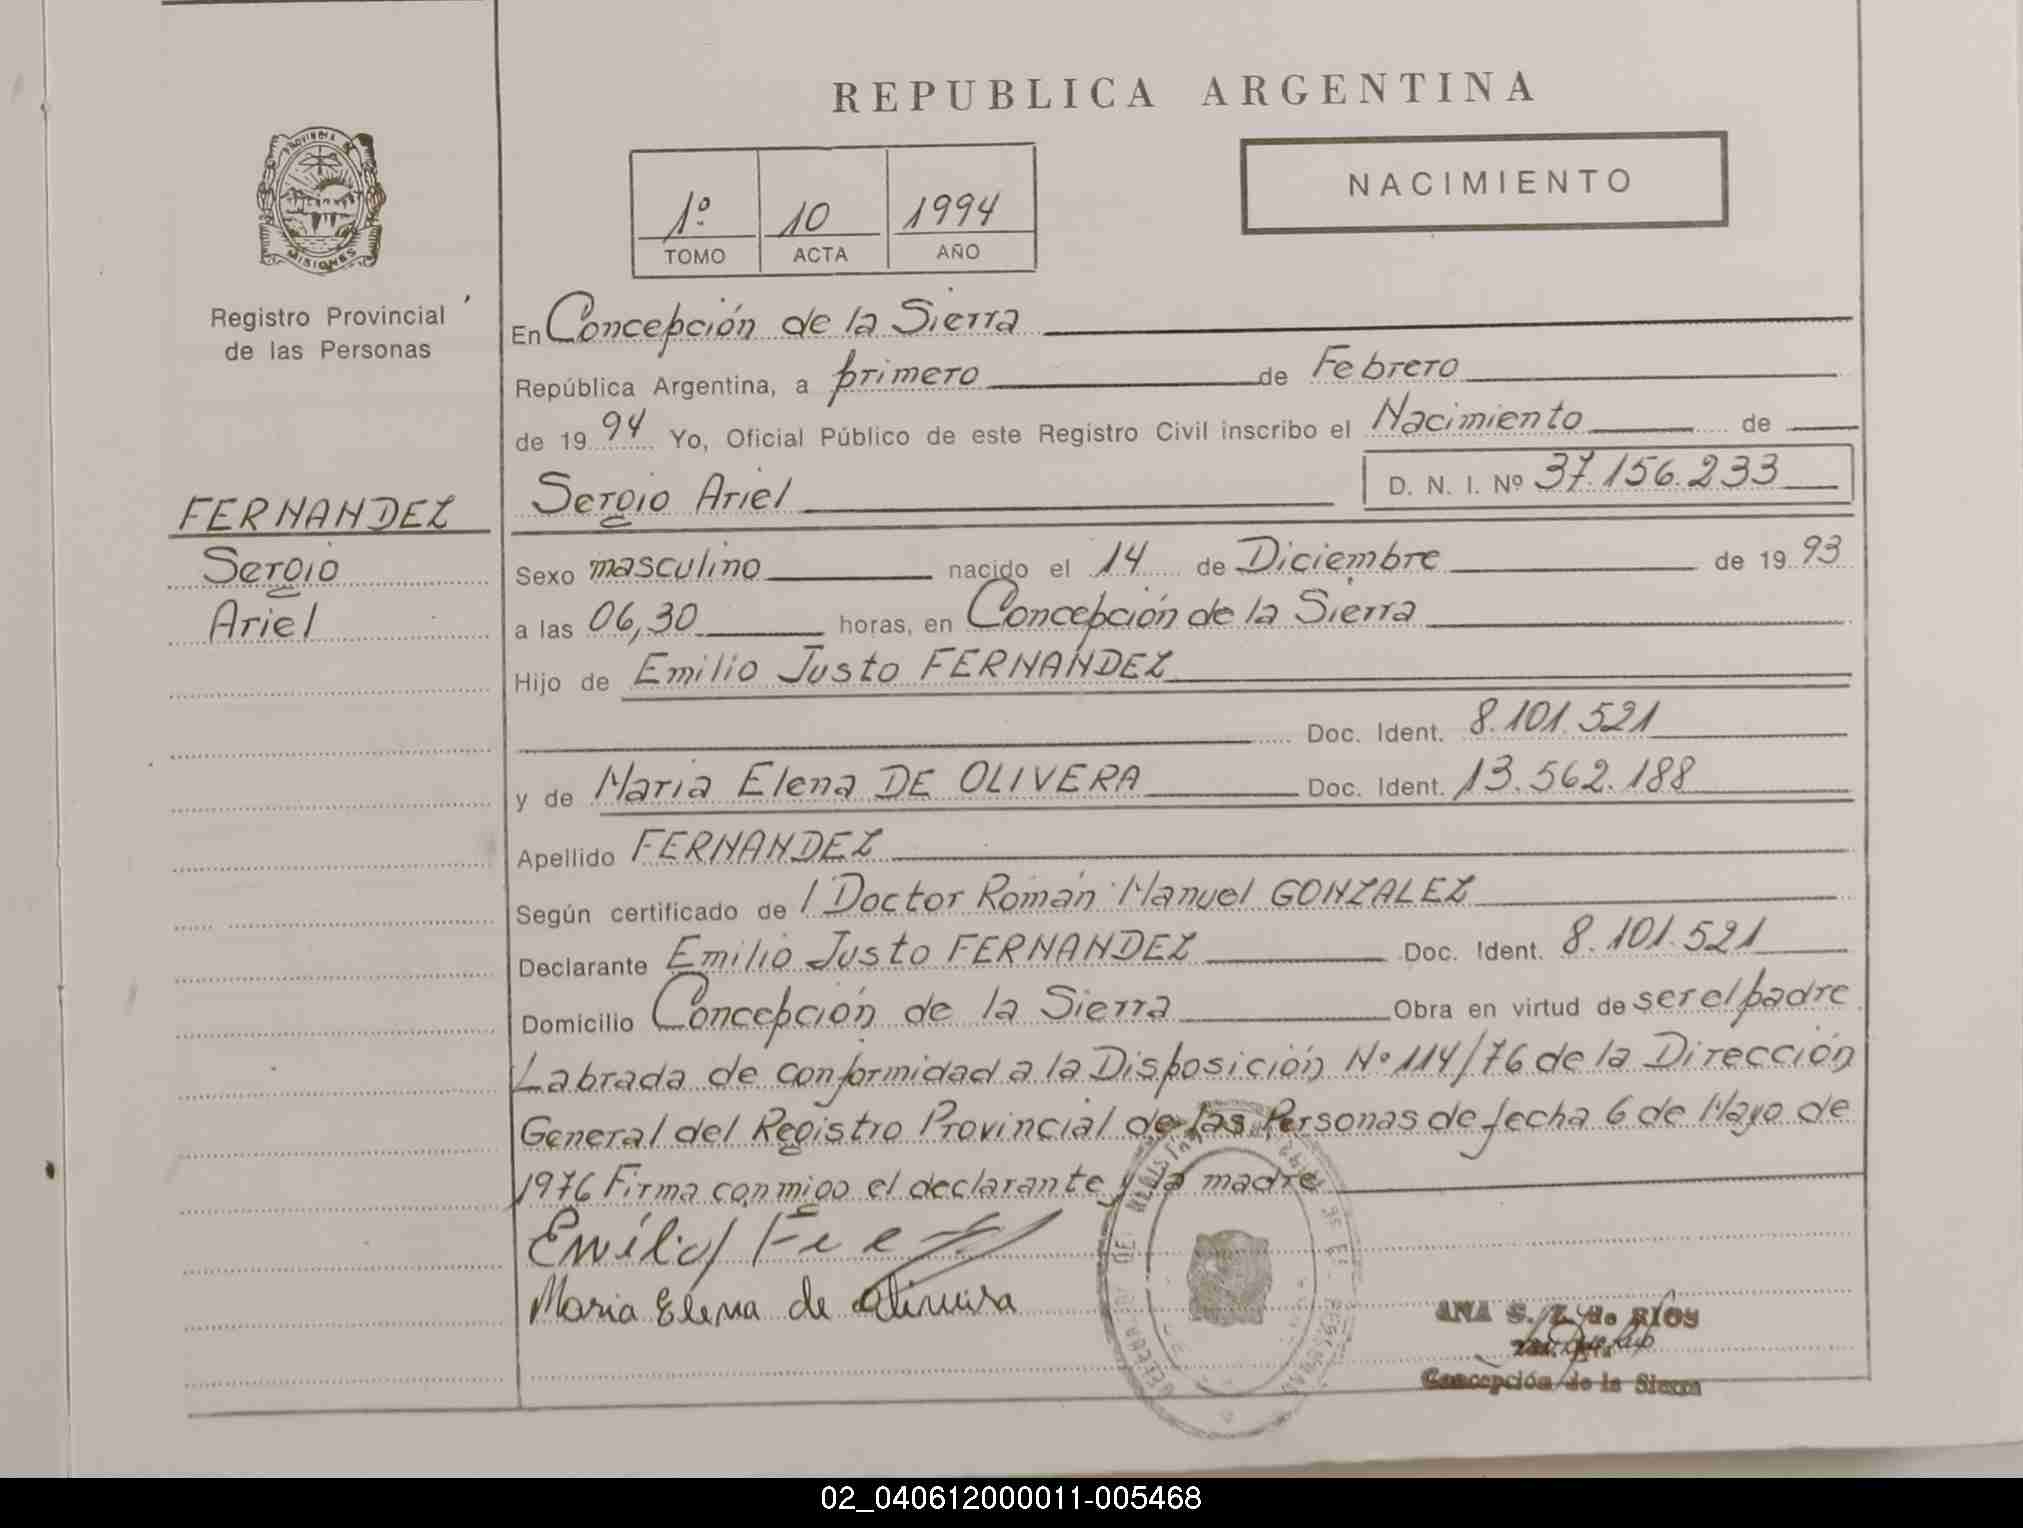 REPUBLICA ARGENTINA
PROVINCIA DE
MISIONES
Registro Provincial
de las Personas
1º 10 1994
TOMO ACTA AÑO
NACIMIENTO
FERNANDEZ
Sergio
Ariel
En Concepción de la Sierra
República Argentina, a primero de Febrero
de 19 94 Yo, Oficial Público de este Registro Civil inscribo el Nacimiento de
Sergio Ariel D. N. I. Nº 37.156.233
Sexo masculino nacido el 14 de Diciembre de 19 93
a las 06,30 horas, en Concepción de la Sierra
Hijo de Emilio Justo FERNANDEZ
Doc. Ident. 8.101.521
y de Maria Elena DE OLIVERA Doc. Ident. 13.562.188
Apellido FERNANDEZ
Según certificado de l Doctor Román Manuel GONZALEZ
Declarante Emilio Justo FERNANDEZ Doc. Ident. 8.101.521
Domicilio Concepción de la Sierra Obra en virtud de ser el padre
Labrada de conformidad a la Disposición Nº 114/76 de la Dirección
General del Registro Provincial de las Personas de fecha 6 de Mayo de
1976 Firma conmigo el declarante y la madre
Emilio
Maria Elena de Olivera
ANA S. Z. de RIOS
Concepción de la Sierra
02_040612000011-005468